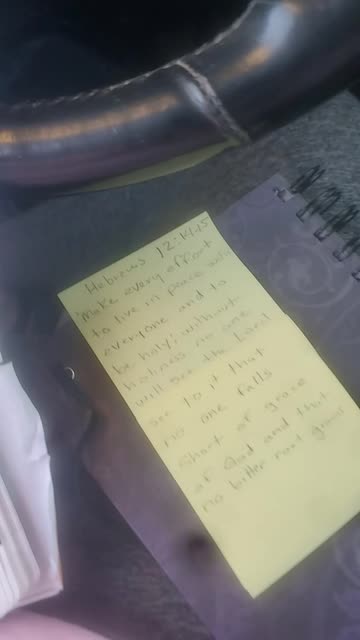 Hebrews 12:14,15
"Make every effort
to live in peace with
everyone and to
be holy; without
holiness no one
will see the Lord
see to it that
no one falls
short of grace
of God and that
no bitter root grows